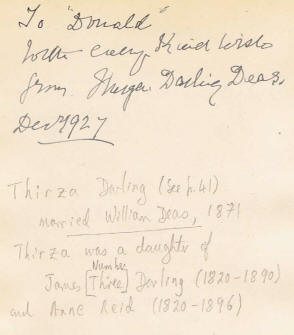 To "Donald"
With every kind wish
from Thirza Darling Deas.
Dec 1927
Thirza Darling (See p.41)
married William Deas, 1871
Thirza was a daughter of
James [Number Three] Darling (1820-1890)
and Anne Reid (1820-1896)